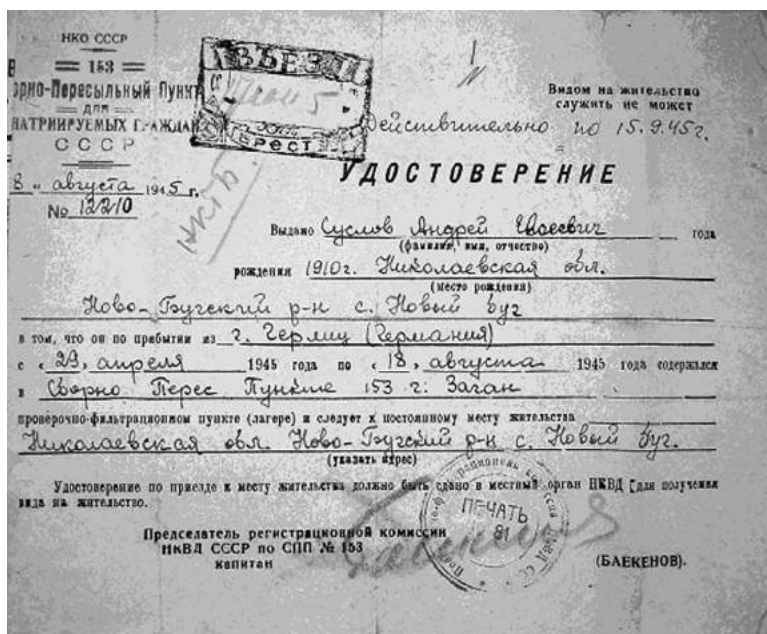 НКО СССР
153
рно-Пересыльный Пункт
ДЛЯ
НАТРИИРУЕМЫХ ГРАЖДАН
СССР
8 " августа 1945 г.
№ 12210
ВЪЕЗД
БРЕСТ
Видом на жительство
служить не может
Действительно по 15.9.45г.
УДОСТОВЕРЕНИЕ
Выдано Суслов Андрей года
(фамилия, имя, отчество)
рождения 1910г. Николаевская обл.
(место рождения)
Ново-Бугский р-н с. Новый Буг
в том, что он по прибытии из г. Герлиц (Германия)
с « 29 » апреля 1945 года по « 18 » августа 1945 года содержался
в Сборно Перес Пункте 153 г. Заган
проверочно-фильтрационном пункте (лагере) и следует к постоянному месту жительства
Николаевская обл. Ново-Бугский р-н с. Новый Буг.
(указать адрес)
Удостоверение по приезде к месту жительства должно быть сдано в местный орган НКВД для получения
вида на жительство.
ПЕЧАТЬ
81
Председатель регистрационной комиссии
НКВД СССР по СПП № 153
капитан
(БАЕКЕНОВ).